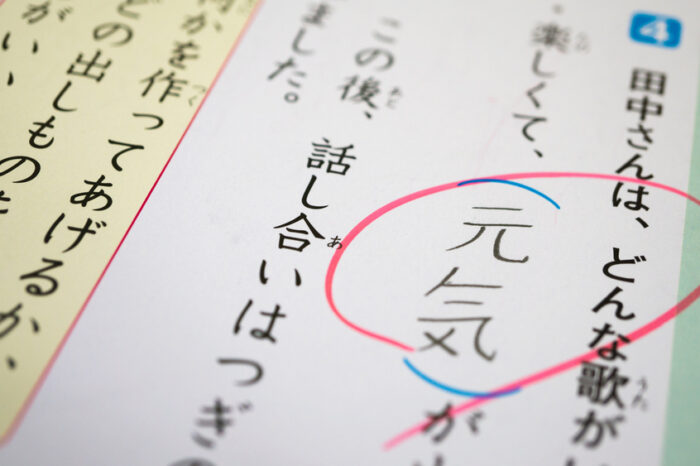 4 田中さんは、どんな歌が
・楽しくて、元気が
この後、話し合いはつぎの
ました。
かを作ってあげるか、
どの出しもの
がい、